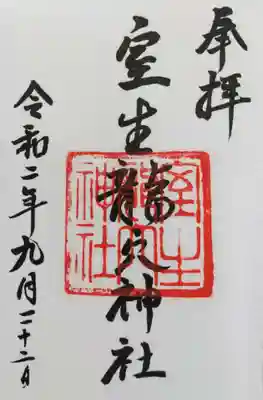 奉拝
室生龍穴神社
室生龍穴神社
令和二年九月二十二日